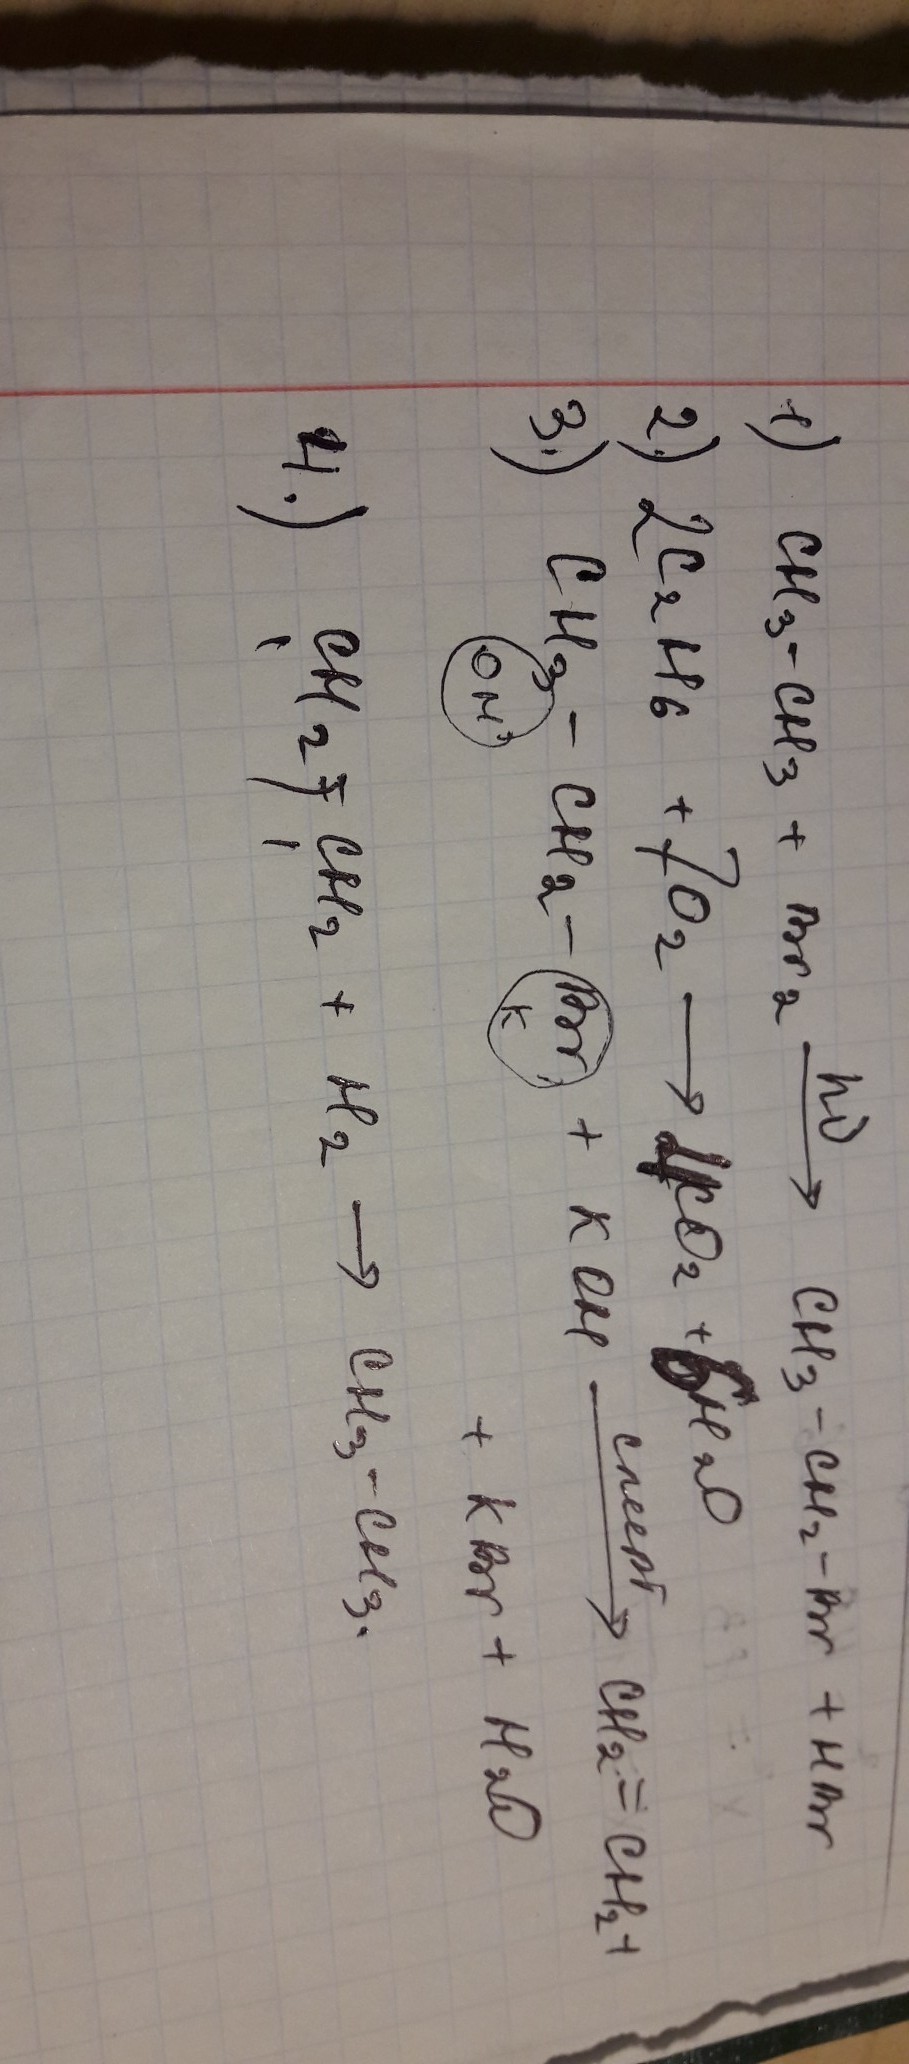 1) CH3-CH3 + Br2 hν→ CH3-CH2-Br + HBr
2.) 2C2H6 + 7O2 → 4CO2 + 6H2O
3.) CH3 - CH2 - Br + KOH спирт→ CH2=CH2 +
OH K + KBr + H2O
4.) CH2=CH2 + H2 → CH3-CH3.